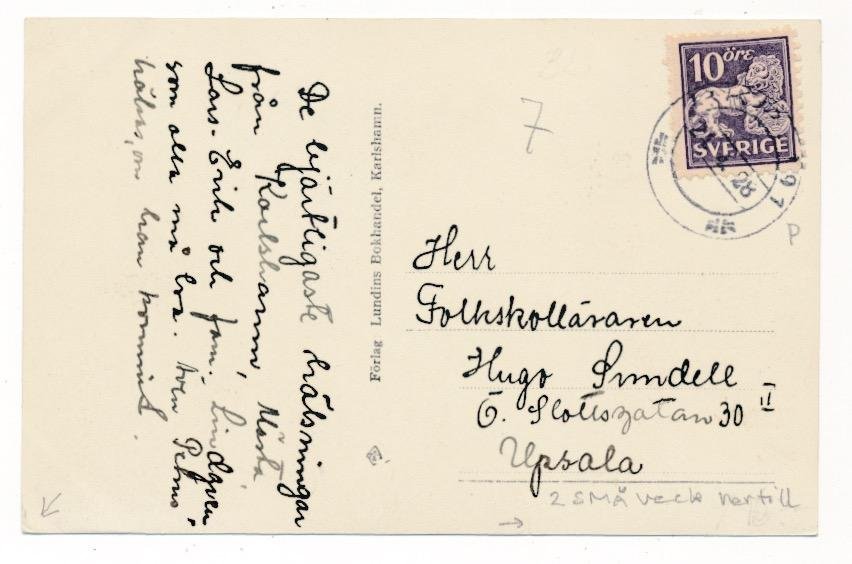 De hjärtligaste hälsningar
från Karlshamn, Märta
Lars-Erik och fam. Lindgren
som alla må bra. Även Petrus
hälsas, om han kommit.
Förlag Lundins Bokhandel, Karlshamn.
7
10 öre
SVERIGE
28
91
P
Herr
Folkskolläraren
Hugo Sundell
Ö. Slottsgatan 30 II
Upsala
2 SMÅ veck nertill